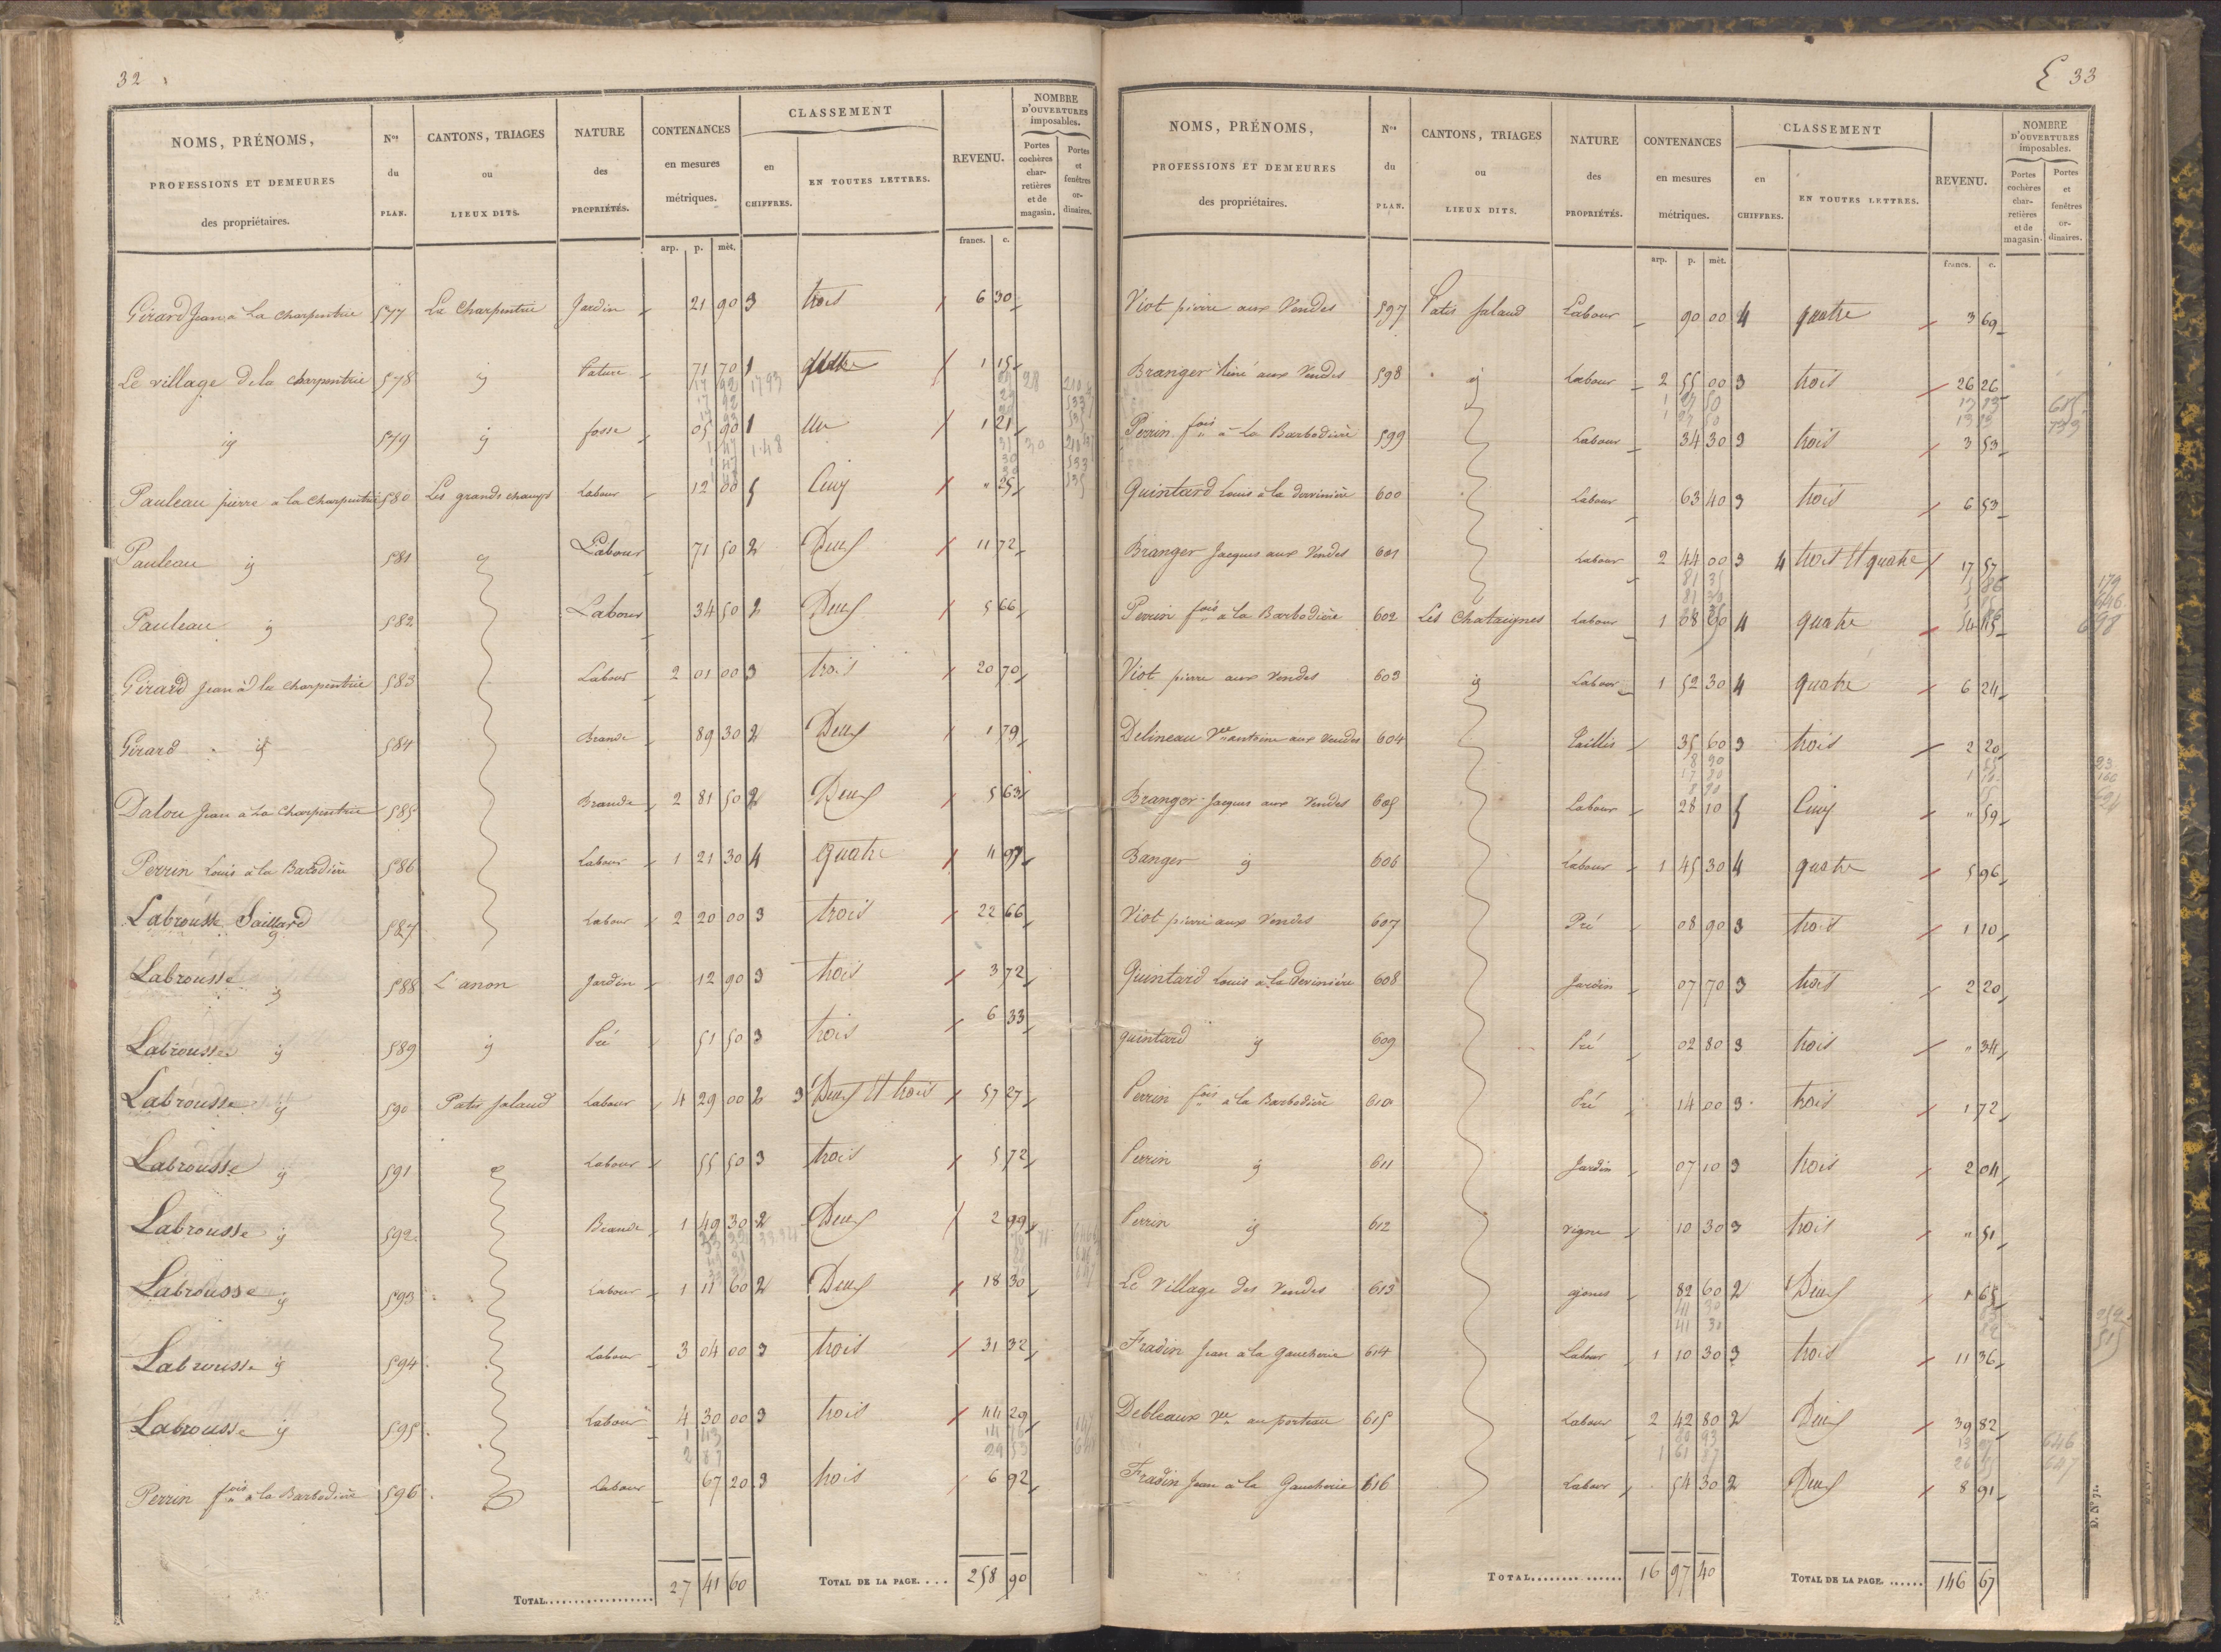 32
NOMS, PRÉNOMS, PROFESSIONS ET DEMEURES des propriétaires. Nos du PLAN. CANTONS, TRIAGES ou LIEUX DITS. NATURE des PROPRIÉTÉS. CONTENANCES en mesures métriques. CLASSEMENT en CHIFFRES. EN TOUTES LETTRES. REVENU. NOMBRE D'OUVERTURES imposables. Portes cochères charretières et de magasin. Portes et fenêtres ordinaires.
arp. p. mèt. francs. c.
Girard Jean à La Charpentrie 577 La Charpentrie Jardin 21 90 3 trois 6 30
Le village de la Charpentrie 578 ij Pature 71 70 1 1 15
ij 579 ij fosse 05 90 1 Un 1 21
Pauleau pierre a la Charpentrie 580 Les grands champs Labour 12 00 5 Cinq " 25
Pauleau ij 581 Labour 71 50 2 Deux 11 72
Pauleau ij 582 Labour 34 50 2 Deux 5 66
Girard Jean à la Charpentrie 583 Labour 2 01 00 3 trois 20 70
Girard ij 584 Brande 89 30 2 Deux 1 79
Dalou Jean à La Charpentrie 585 Brande 2 81 50 2 Deux 5 63
Perrin Louis à la Barbodière 586 Labour 1 21 30 4 quatre 4 97
Labrousse Saillard 587 Labour 2 20 00 3 trois 22 66
Labrousse ij 588 L'anon Jardin 12 90 3 trois 3 72
Labrousse ij 589 ij Pré 51 50 3 trois 6 33
Labrousse ij 590 Patis Jalaud Labour 4 29 00 2 3 Deux Et trois 57 27
Labrousse ij 591 Labour 55 50 3 trois 5 72
Labrousse ij 592 Brande 1 49 30 2 Deux 2 99
Labrousse ij 593 Labour 1 11 60 2 Deux 18 30
Labrousse ij 594 Labour 3 04 00 3 trois 31 32
Labrousse ij 595 Labour 4 30 00 3 trois 44 29
Perrin fois à la Barbodière 596 Labour 67 20 3 trois 6 92
TOTAL 27 41 60 TOTAL DE LA PAGE 258 90
33
NOMS, PRÉNOMS, PROFESSIONS ET DEMEURES des propriétaires. Nos du PLAN. CANTONS, TRIAGES ou LIEUX DITS. NATURE des PROPRIÉTÉS. CONTENANCES en mesures métriques. CLASSEMENT en CHIFFRES. EN TOUTES LETTRES. REVENU. NOMBRE D'OUVERTURES imposables. Portes cochères charretières et de magasin. Portes et fenêtres ordinaires.
arp. p. mèt. francs. c.
Viot pierre aux Vendes 597 Patis Jalaud Labour 90 00 4 quatre 3 69
Branger Réné aux Vendes 598 ij Labour 2 55 00 3 trois 26 26
Perrin fois à la Barbodière 599 Labour 34 30 3 trois 3 53
Quintard Louis à la devinière 600 Labour 63 40 3 trois 6 53
Branger Jacques aux Vendes 601 Labour 2 44 00 3 4 trois Et quatre 17 57
Perrin fois à la Barbodière 602 Les Chataignes Labour 1 4 quatre
Viot pierre aux Vendes 603 ij Labour 1 52 30 4 quatre 6 24
Delineau Vee antoine aux Vendes 604 Taillis 35 60 3 trois 2 20
Branger Jacques aux Vendes 605 Labour 28 10 5 Cinq " 59
Banger ij 606 Labour 1 45 30 4 quatre 5 96
Viot pierre aux Vendes 607 Pré 08 90 3 trois 1 10
Quintard Louis à la devinière 608 Jardin 07 70 3 trois 2 20
quintard ij 609 Pré 02 80 3 trois " 34
Perrin fois à la Barbodière 610 Pré 14 00 3 trois 1 72
Perrin ij 611 Jardin 07 10 3 trois 2 04
Perrin ij 612 vigne 10 30 3 trois " 51
Le Village des Vendes 613 ajoncs 82 60 2 Deux 1 65
Fradin Jean à la Gaucherie 614 Labour 1 10 30 3 trois 11 36
Debleaux Vee au porteau 615 Labour 2 42 80 2 Deux 39 82
Fradin Jean à la Gaucherie 616 Labour 54 30 2 Deux 8 91
TOTAL 16 97 40 TOTAL DE LA PAGE 146 67
D. No 71.